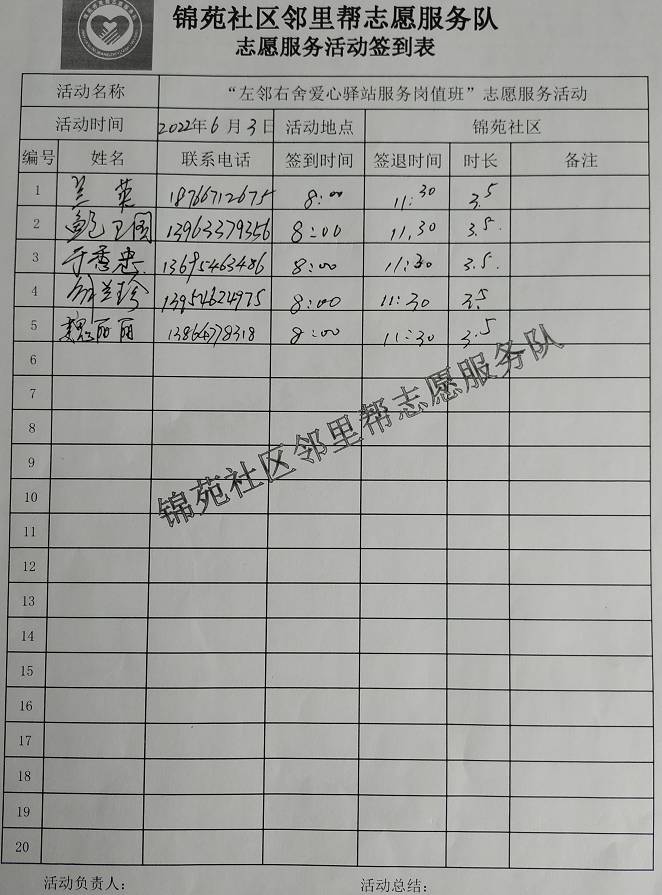 锦苑社区邻里帮志愿服务队
志愿服务活动签到表
活动名称 “左邻右舍爱心驿站服务岗值班”志愿服务活动
活动时间 2022年6月3日 活动地点 锦苑社区
编号 姓名 联系电话 签到时间 签退时间 时长 备注
1 兰英 18766712675 8:00 11:30 3.5
2 鲍卫国 13963379356 8:00 11.30 3.5.
3 于香忠 13695463486 8:00 11:30 3.5.
4 兰珍 13954624975 8:00 11:30 3.5
5 魏丽丽 13864778318 8:00 11:30 3.5
6
7
8
9
10
11
12
13
14
15
16
17
18
19
20
锦苑社区邻里帮志愿服务队
活动负责人： 活动总结：